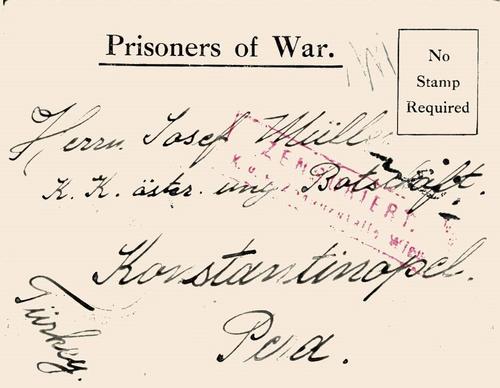 Prisoners of War.
No
Stamp
Required
Herrn Josef Müller
ZENSURIERT.
K. K. öster. ung. Botschaft.
Konstantinopel.
Pera.
Türkey.